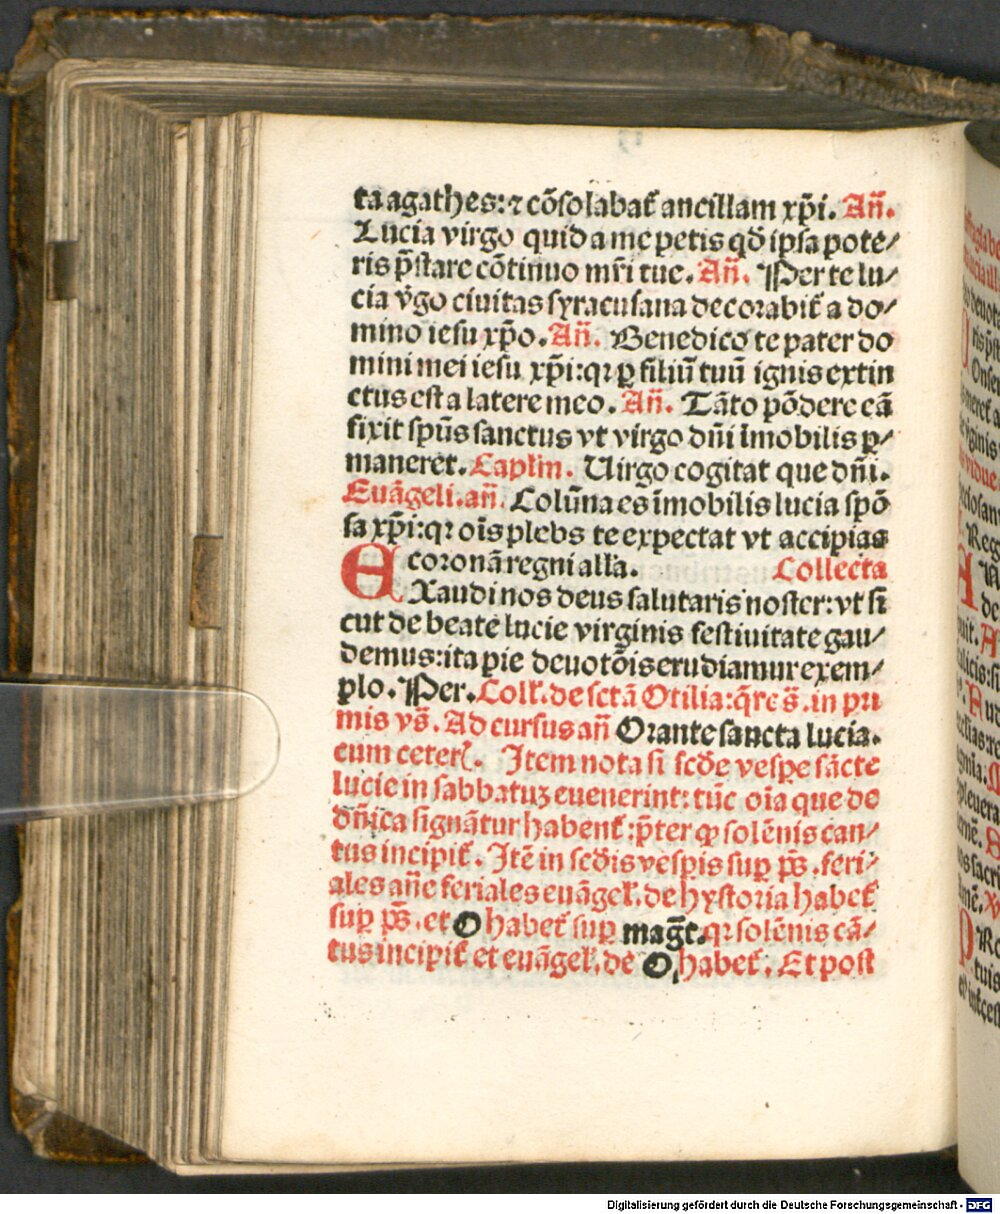 ta agathes: ⁊ cōsolabat᷑ ancillam xp̄i. An̄.
Lucia virgo quid a me petis qđ ipsa pote⸗
ris p̄stare cōtinuo mr̄i tue. An̄. Per te lu⸗
cia v̄go ciuitas syracusana decorabit᷑ a do⸗
mino iesu xp̄o. An̄. Benedico te pater do
mini mei iesu xp̄i: qꝛ ꝑ filiū tuū ignis extin
ctus est a latere meo. An̄. Tāto pōdere eā
fixit sp̄ūs sanctus vt virgo dn̄i īmobilis ꝑ⸗
maneret. Capłm. Uirgo cogitat que dn̄i.
Euāgeli. an̄. Colūna es īmobilis lucia spō
sa xp̄i: qꝛ oīs plebs te expectat vt accipias
coronā regni alła. Collecta
EXaudi nos deus salutaris noster: vt si
cut de beate lucie virginis festiuitate gau⸗
demus: ita pie deuotōis erudiamur exem⸗
plo. Per. Coll'. de sctā Otilia: q̄re s̄. in pri
mis vs̄. Ad cursus an̄ Orante sancta lucia.
cum ceterꝭ. Item nota si scđe vesꝑe sācte
lucie in sabbatuꝫ euenerint: tūc oīa que de
dn̄ica signātur habent᷑: p̄ter ꝙ solēnis can⸗
tus incipit᷑. Itē in scđis vesꝑis suꝑ ps̄. feri⸗
ales an̄e feriales euāgel'. de hystoria habet᷑
suꝑ ps̄. et O habet᷑ suꝑ magt̄. qꝛ solēnis cā⸗
tus incipit᷑ et euāgel'. de O, habet᷑. Et post
Digitalisierung gefördert durch die Deutsche Forschungsgemeinschaft - DFG